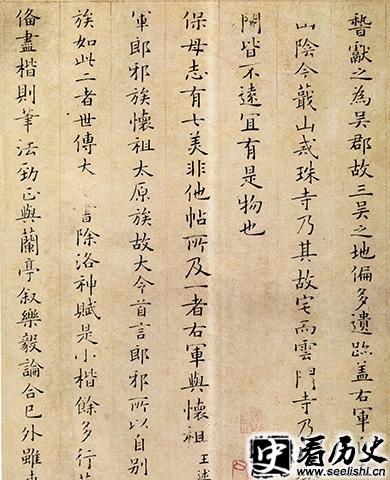 獻之為吳郡故三吳之地偏多遺跡蓋右軍
山陰今蕺山戒珠寺乃其故宅而雲門寺乃
皆不遠冝有是物也
保母志有七美非他帖所及一者右軍與懷祖王述
軍郎邪族懷祖太原族故大令首言郎邪所以自別
族如此二者世傳大 書除洛神賦是小楷餘多行
俻盡楷則筆法勁正與蘭亭叙樂毅論合已外雖
史看历史
www.seelishi.cn